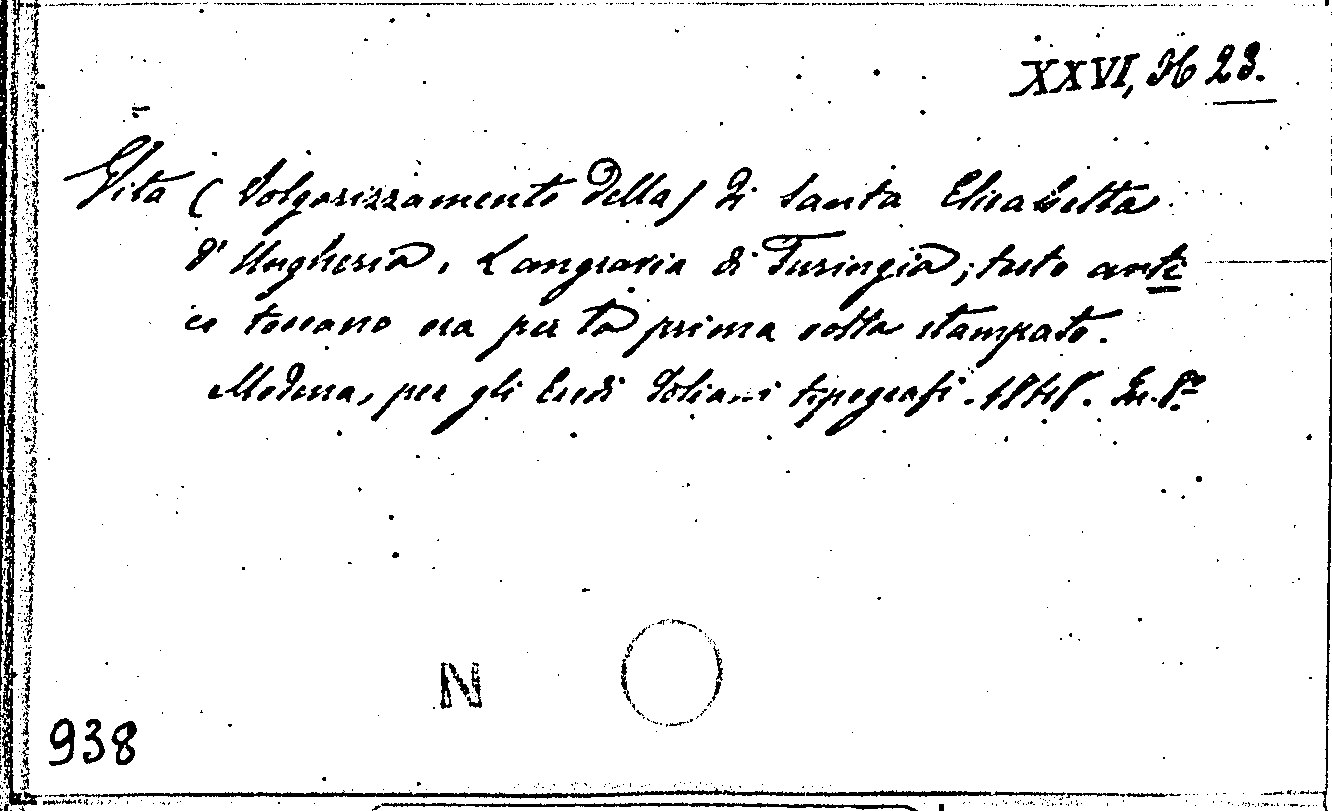 XXVI, H 23.
Vita (Volgarizzamento della) di Santa Elisabetta
d'Ungheria, Langravia di Turingia; testo anti
co toscano ora per la prima volta stampato.
Modena, per gli Eredi Soliani tipografi. 1848. In-8º
N
938